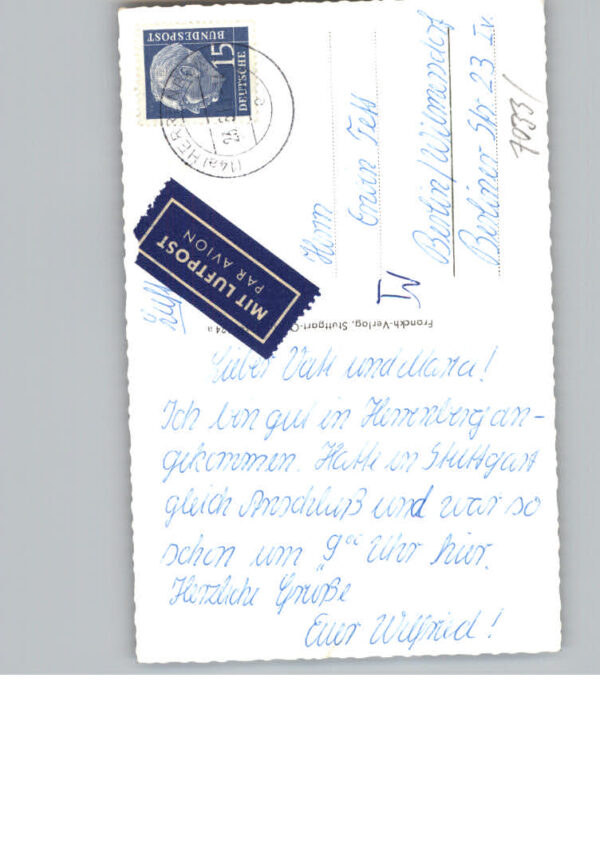 Lieber Vati und Maria!
Ich bin gut in Herrenberg an-
gekommen. Hatte in Stuttgart
gleich Anschluß und war so
schon um 9°° Uhr hier.
Herzliche Grüße
Euer Wilfried!
Herrn
Erwin
Berlin/Wilmersdorf
Berliner Str 23 IV.
IV
7033/
Luft
MIT LUFTPOST
PAR AVION
DEUTSCHE
BUNDESPOST
15
(14a) HERRENBERG
Franckh-Verlag, Stuttgart-O
24 a